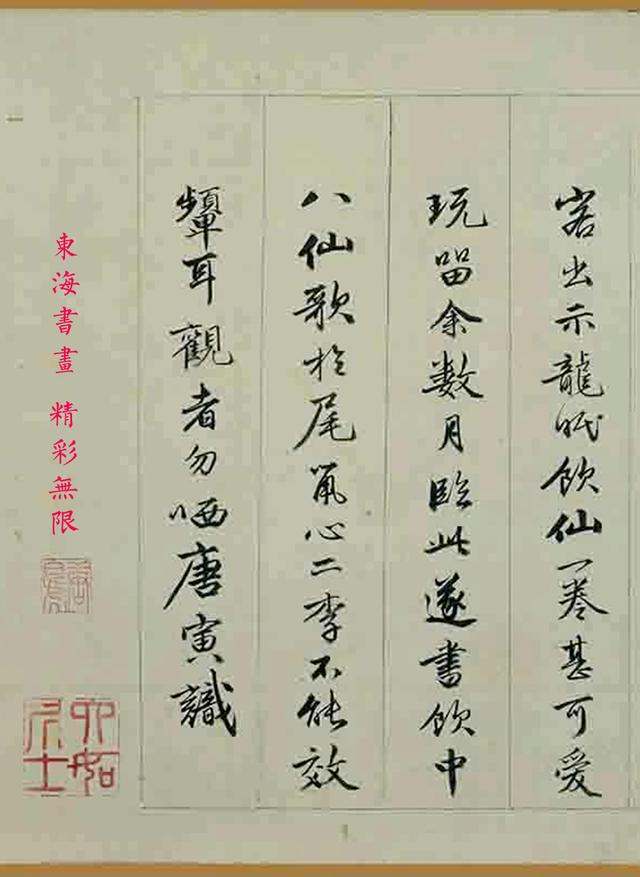 客出示龍眠飲仙一卷甚可愛
玩留余數月臨此遂書飲中
八仙歌於尾第心二李不能效
顰耳觀者勿哂唐寅識
東海書畫 精彩無限
唐寅
六如居士